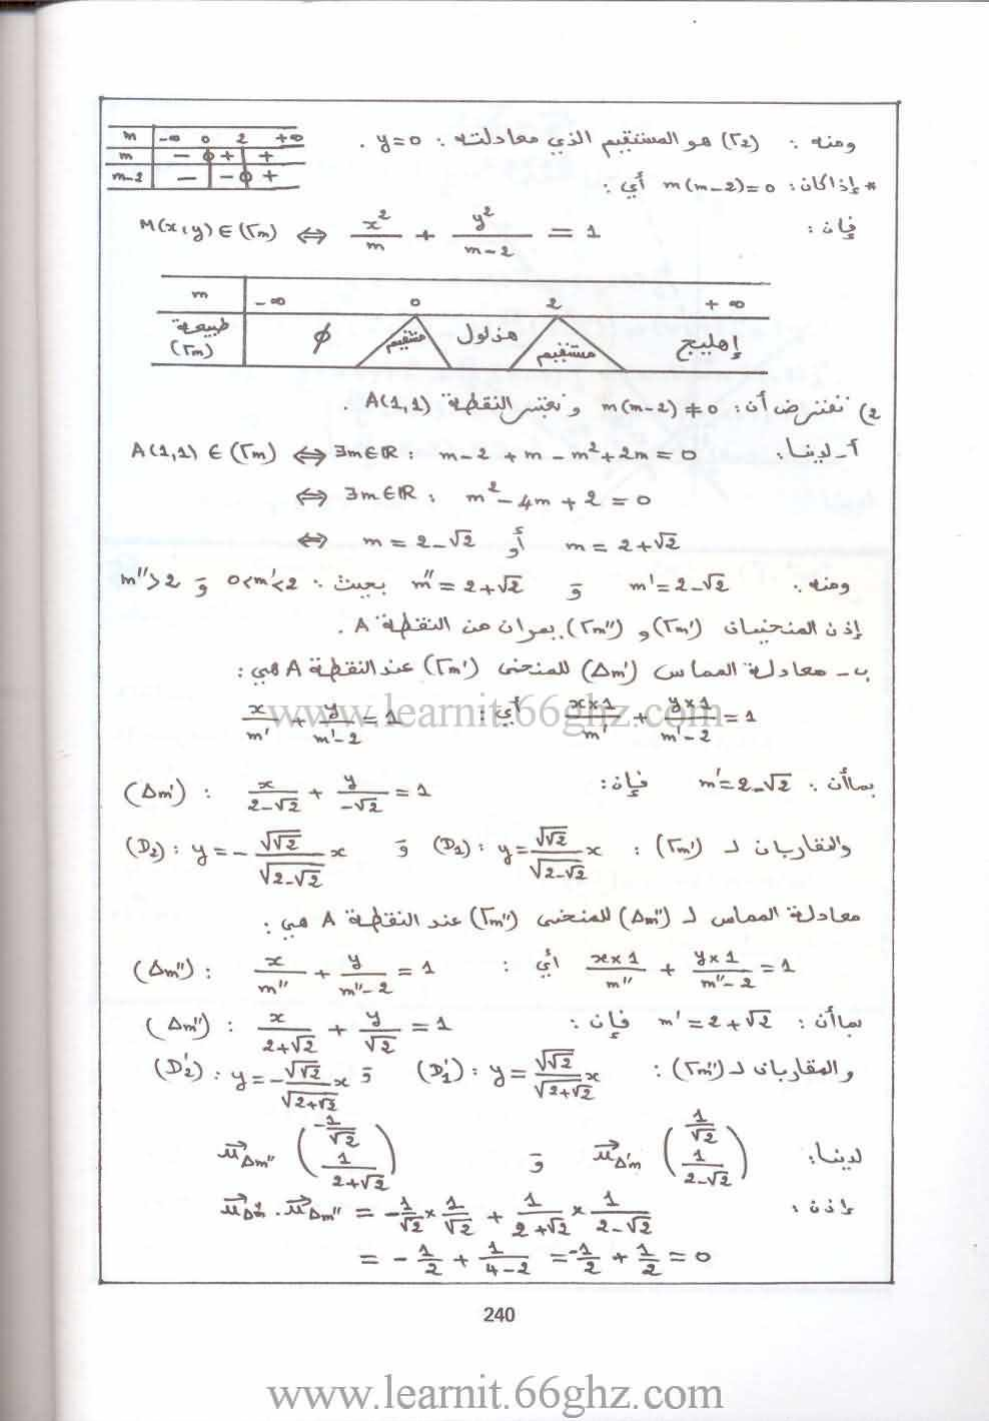 ومنه : (Γ2) هو المستقيم الذي معادلته : y=0 .
m -∞ 0 2 +∞
m − 0 + +
m-2 − − 0 +
* إذا كان : m(m-2)=0 أي :
فإن : M(x,y) ∈ (Γm) ⇔ x²/m + y²/(m-2) = 1
m -∞ 0 2 +∞
طبيعة (Γm) φ مستقيم هذلول مستقيم إهليج
2) نفترض أن : m(m-2) ≠ 0 و نعتبر النقطة A(1,1) .
أ- لدينا : A(1,1) ∈ (Γm) ⇔ ∃m∈ℝ : m-2 + m - m² + 2m = 0
⇔ ∃m∈ℝ : m² - 4m + 2 = 0
⇔ m = 2-√2 أو m = 2+√2
ومنه : m' = 2-√2 و m'' = 2+√2 بحيث : 0<m'<2 و m''>2
إذن المنحنيان (Γm') و (Γm'') يمران من النقطة A .
ب- معادلة المماس (Δm') للمنحنى (Γm') عند النقطة A هي :
x×1/m' + y×1/(m'-2) = 1 أي : x/m' + y/(m'-2) = 1
بما أن : m' = 2-√2 فإن : (Δm') : x/(2-√2) + y/(-√2) = 1
والمقاربان لـ (Γm') : (D1) : y = (√√2/√(2-√2)) x و (D2) : y = -(√√2/√(2-√2)) x
معادلة المماس لـ (Δm'') للمنحنى (Γm'') عند النقطة A هي :
x×1/m'' + y×1/(m''-2) = 1 أي : (Δm'') : x/m'' + y/(m''-2) = 1
بما أن : m' = 2+√2 فإن : (Δm'') : x/(2+√2) + y/√2 = 1
والمقاربان لـ (Γm'') : (D'1) : y = (√√2/√(2+√2)) x و (D'2) : y = -(√√2/√(2+√2)) x
لدينا : u⃗Δ'm (1/√2 ; 1/(2-√2)) و u⃗Δm'' (-1/√2 ; 1/(2+√2))
إذن : u⃗Δm' . u⃗Δm'' = -1/√2 × 1/√2 + 1/(2+√2) × 1/(2-√2)
= -1/2 + 1/(4-2) = -1/2 + 1/2 = 0
240
www.learnit.66ghz.com
www.learnit.66ghz.com